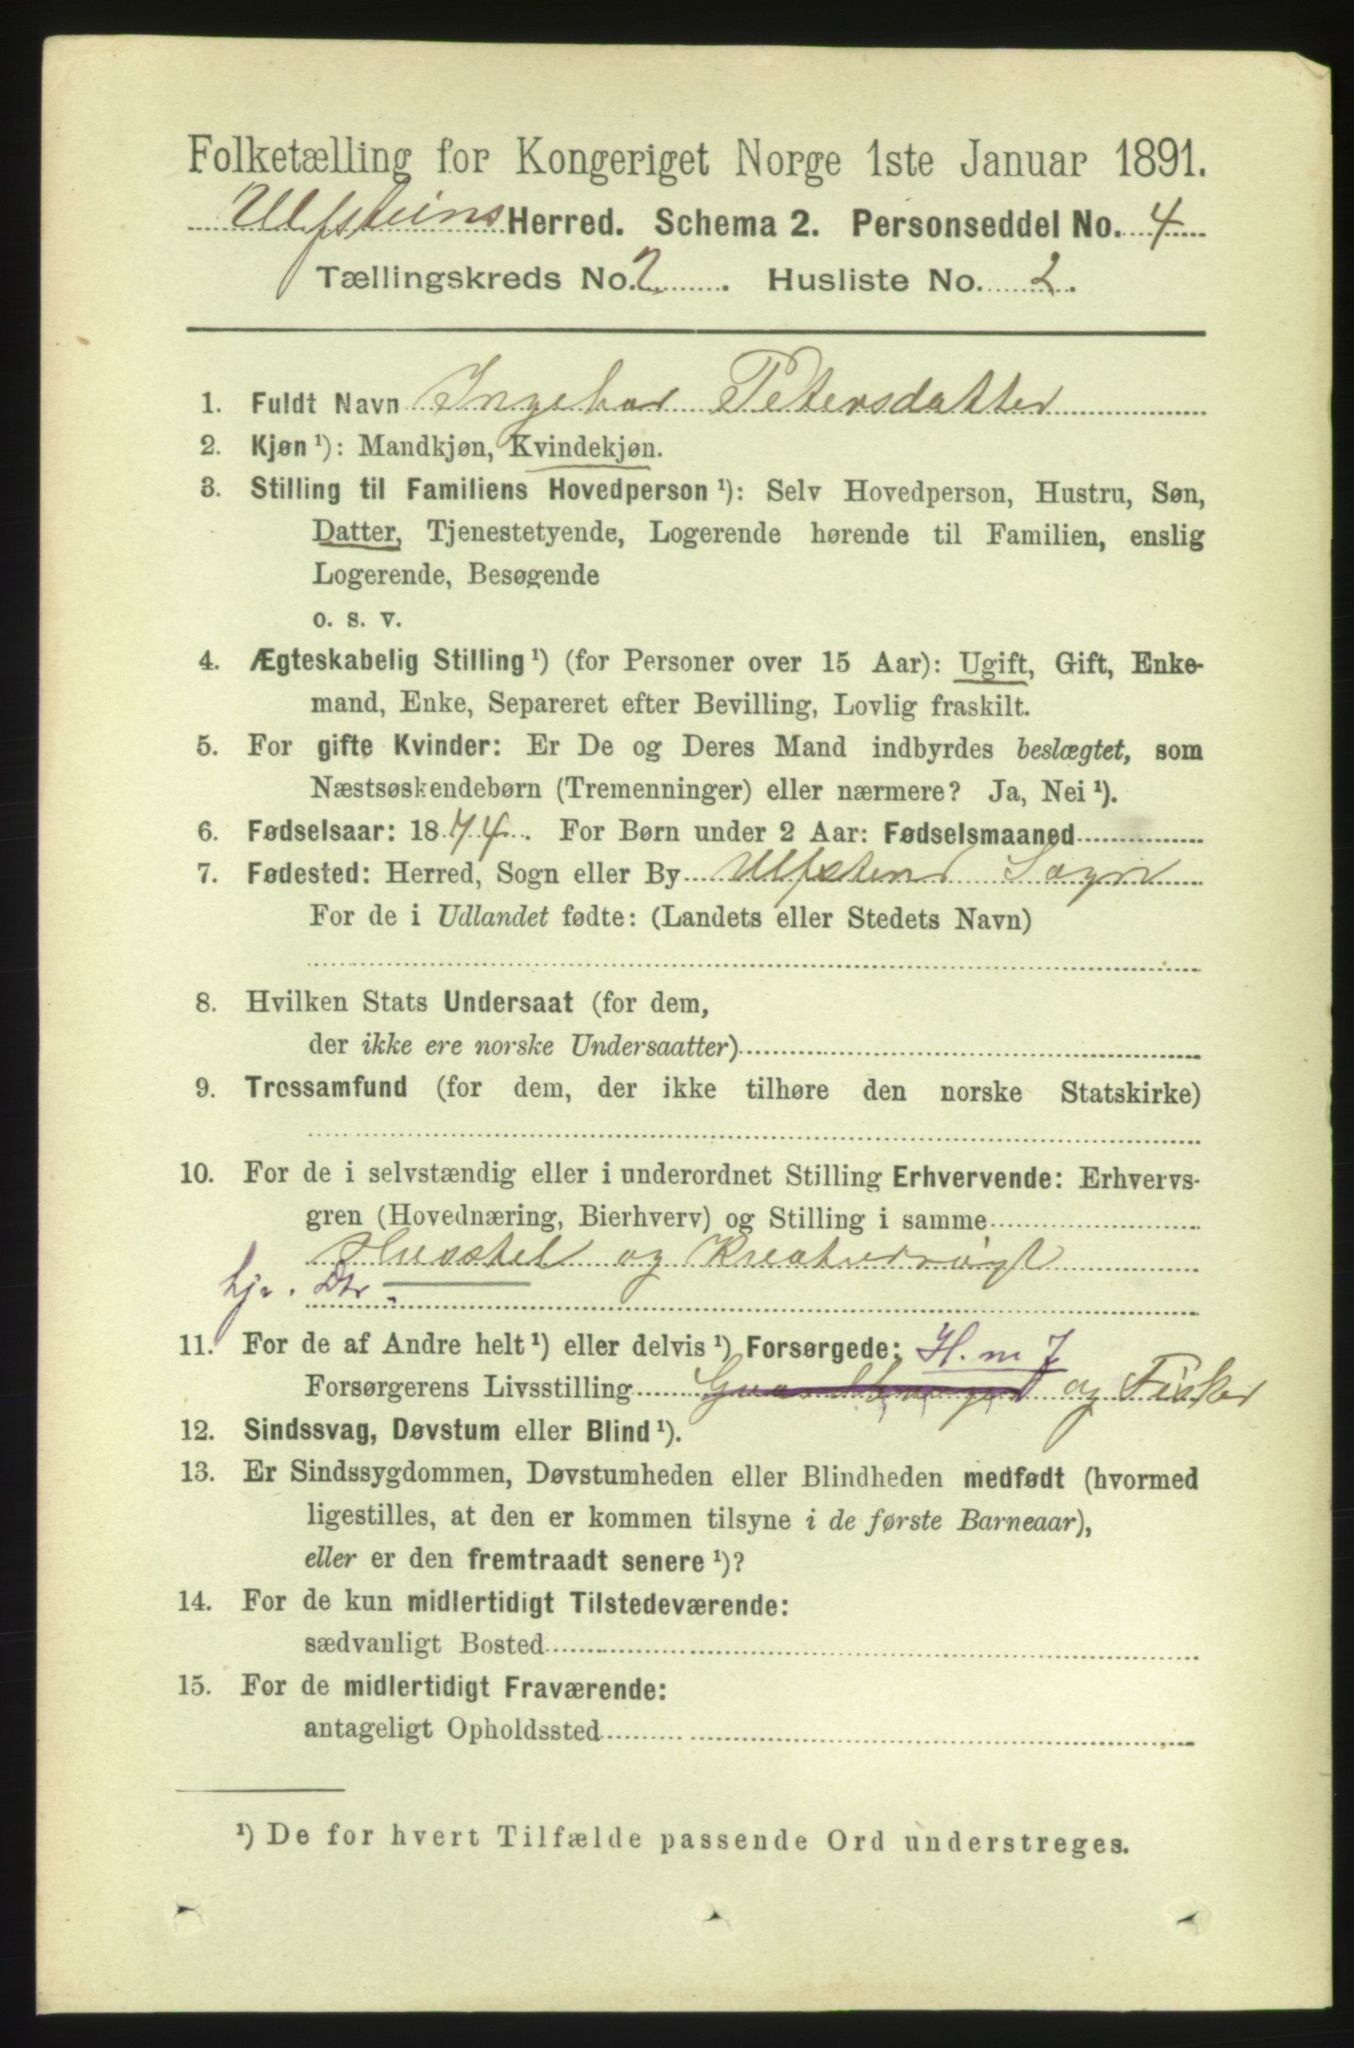 Folketælling for Kongeriget Norge 1ste Januar 1891.
Ulfsteins Herred. Schema 2. Personseddel No. 4
Tællingskreds No. 2. Husliste No. 2.
1. Fuldt Navn Ingebor Petersdatter
2. Kjøn ¹): Mandkjøn, Kvindekjøn.
3. Stilling til Familiens Hovedperson ¹): Selv Hovedperson, Hustru, Søn,
Datter, Tjenestetyende, Logerende hørende til Familien, enslig
Logerende, Besøgende
o. s. v.
4. Ægteskabelig Stilling ¹) (for Personer over 15 Aar): Ugift, Gift, Enke-
mand, Enke, Separeret efter Bevilling, Lovlig fraskilt.
5. For gifte Kvinder: Er De og Deres Mand indbyrdes beslægtet, som
Næstsøskendebørn (Tremenninger) eller nærmere? Ja, Nei ¹).
6. Fødselsaar: 1874. For Børn under 2 Aar: Fødselsmaaned
7. Fødested: Herred, Sogn eller By Ulfstens Sogn
For de i Udlandet fødte: (Landets eller Stedets Navn)
8. Hvilken Stats Undersaat (for dem,
der ikke ere norske Undersaatter)
9. Trossamfund (for dem, der ikke tilhøre den norske Statskirke)
10. For de i selvstændig eller i underordnet Stilling Erhvervende: Erhvervs-
gren (Hovednæring, Bierhverv) og Stilling i samme
Husstel og Kreaturrøgt
hj. Dtr.
11. For de af Andre helt ¹) eller delvis ¹) Forsørgede: H. m 7
Forsørgerens Livsstilling Gaardbruger og Fisker
12. Sindssvag, Døvstum eller Blind ¹).
13. Er Sindssygdommen, Døvstumheden eller Blindheden medfødt (hvormed
ligestilles, at den er kommen tilsyne i de første Barneaar),
eller er den fremtraadt senere ¹)?
14. For de kun midlertidigt Tilstedeværende:
sædvanligt Bosted
15. For de midlertidigt Fraværende:
antageligt Opholdssted
¹) De for hvert Tilfælde passende Ord understreges.